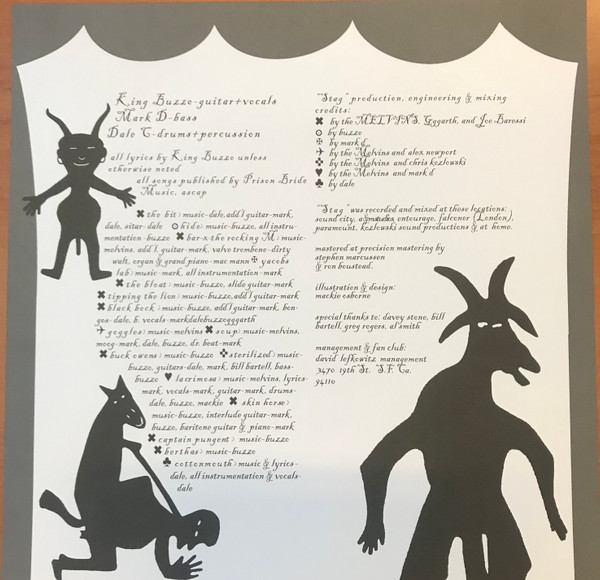 King Buzzo-guitar+vocals
Mark D-bass
Dale C-drums+percussion
all lyrics by King Buzzo unless
otherwise noted
all songs published by Prison Bride
Music, ascap
✖ the bit: music-dale, add'l guitar-mark,
dale, sitar-dale ⊙ hide: music-buzzo, all instru-
mentation-buzzo ✖ bar-x-the rocking M: music-
melvins, add'l guitar-mark, valve trombone-dirty
walt, organ & grand piano-mac mann ✠ yacobs
lab: music-mark, all instrumentation-mark
✖ the bloat: music-buzzo, slide guitar-mark
✖ tipping the lion: music-buzzo, add'l guitar-mark
✖ black bock: music-buzzo, add'l guitar-mark, bon-
gos-dale, b. vocals-markdalebuzzogggarth
✈ goggles: music-melvins ✖ soup: music-melvins,
moog-mark, dale, buzzo, dr. beat-mark
✖ buck owens: music-buzzo ✤ sterilized: music-
buzzo, guitars-dale, mark, bill bartell, bass-
buzzo ♥ lacrimosa: music-melvins, lyrics-
mark, vocals-mark, guitar-mark, drums-
dale, buzzo, mackie ✖ skin horse:
music-buzzo, interlude guitar-mark,
buzzo, baritone guitar & piano-mark
✖ captain pungent: music-buzzo
✖ berthas: music-buzzo
♣ cottonmouth: music & lyrics-
dale, all instrumentation & vocals-
dale
"Stag" production, engineering & mixing
credits:
✖ by the MELVINS, Gggarth, and Joe Barossi
⊙ by buzzo
✠ by mark d
✈ by the Melvins and alex newport
✤ by the Melvins and chris kozlowski
♥ by the Melvins and mark d
♣ by dale
"Stag" was recorded and mixed at these locations:
sound city, a&m studios, entourage, falconer (London),
paramount, kozlowski sound productions & at home.
mastered at precision mastering by
stephen marcussen
& ron boustead.
illustration & design:
mackie osborne
special thanks to: davey stone, bill
bartell, greg rogers, al smith
management & fan club:
david lefkowitz management
3470 19th St. S.F. Ca.
94110